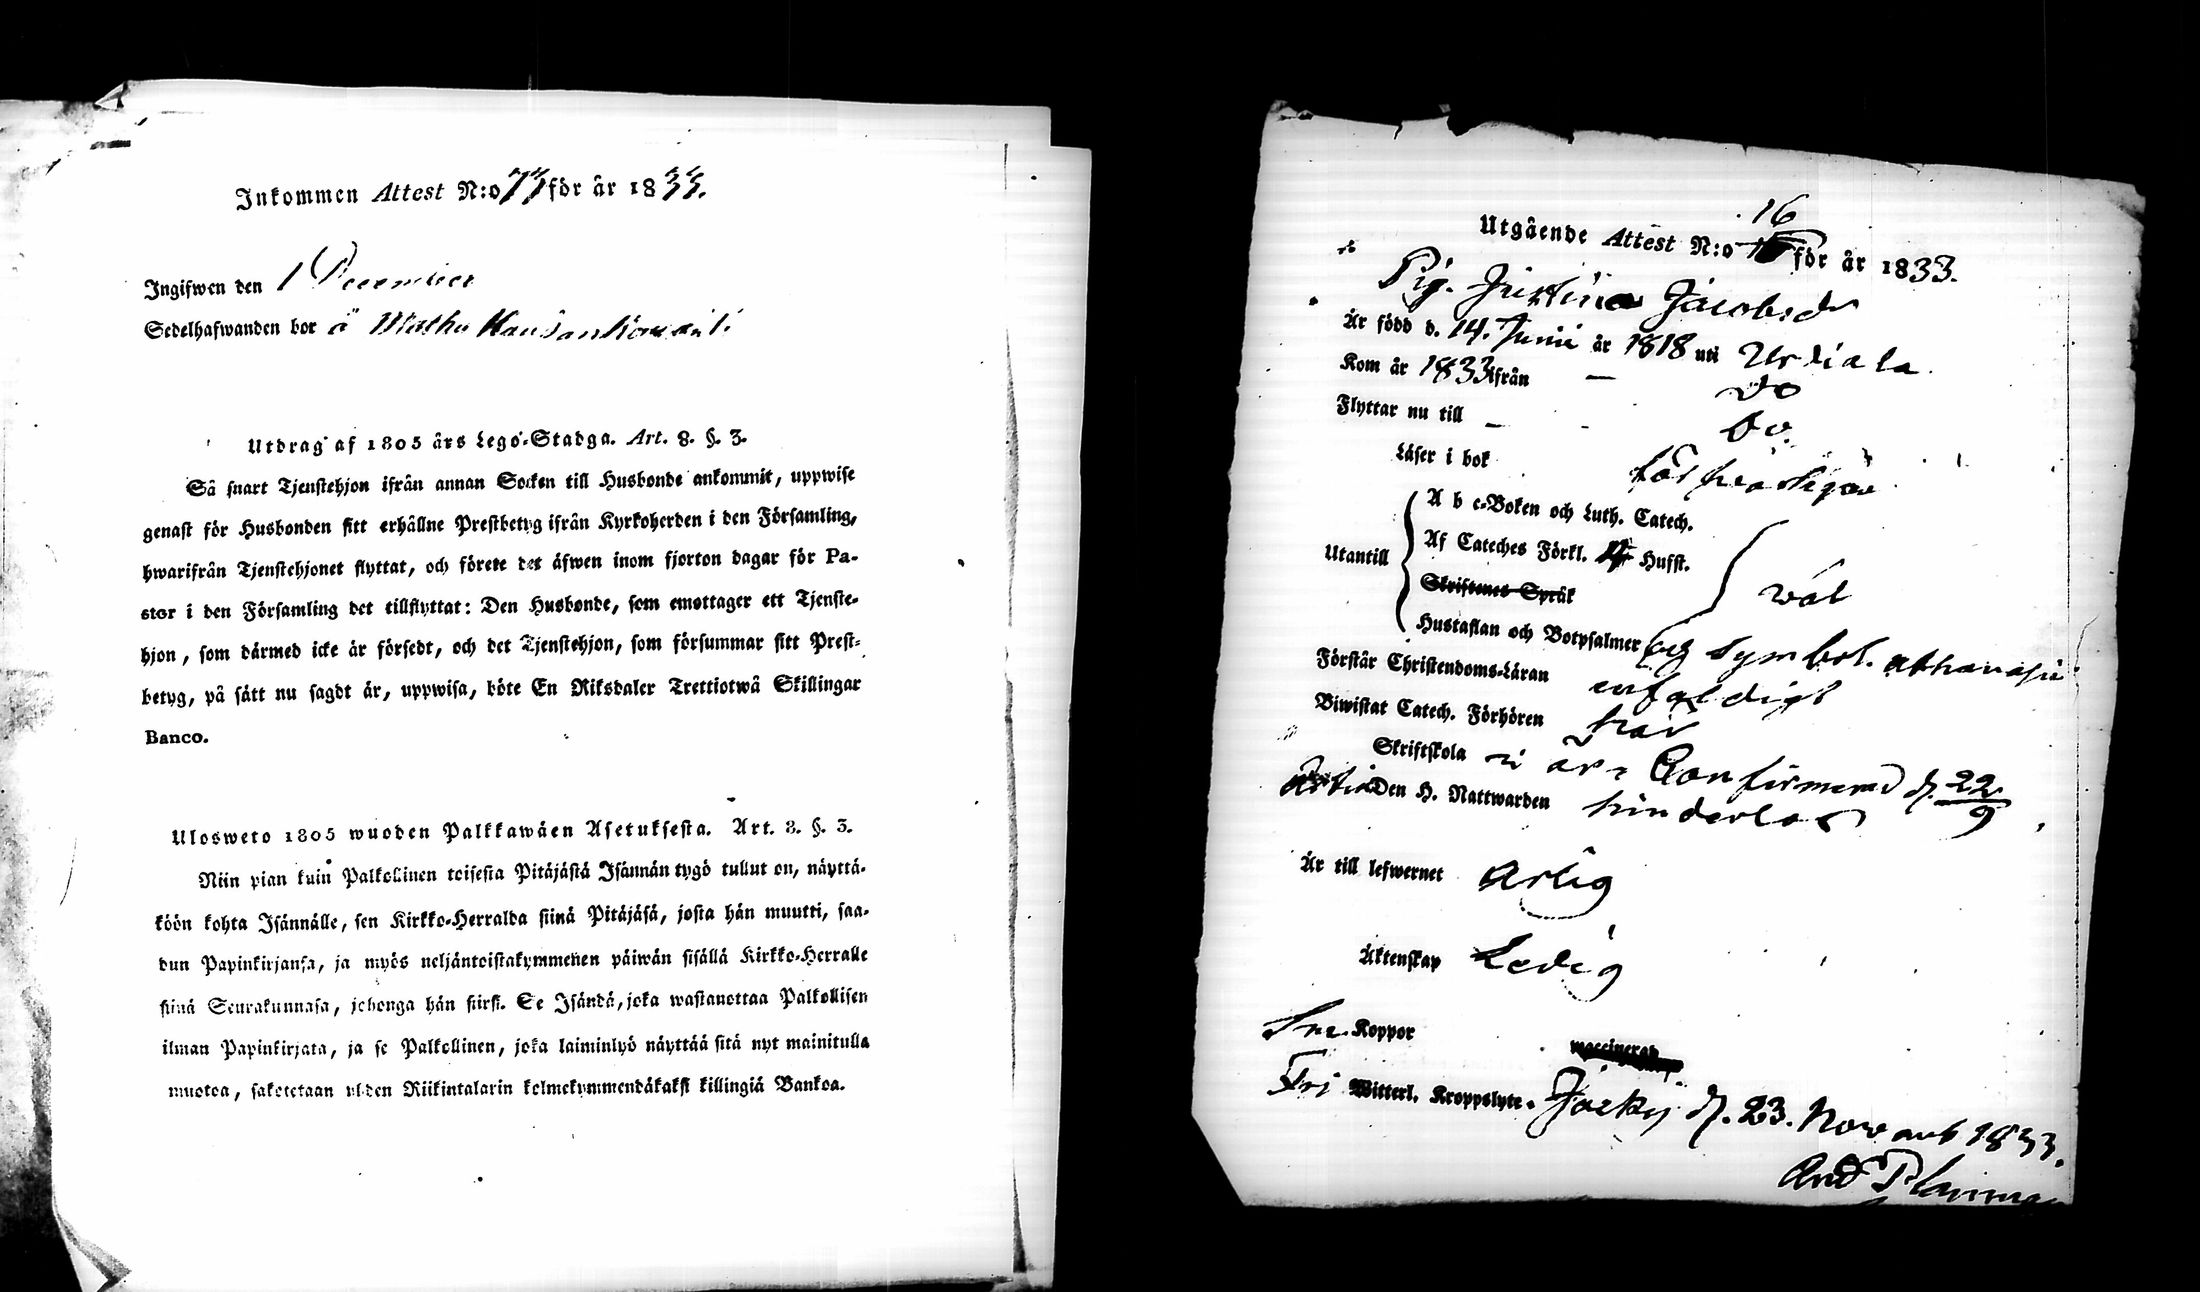 Inkommen Attest N:o 77 för år 1833.
Ingifwen den 1 December
Sedelhafwanden bor å
Utdrag af 1805 års Lego-Stadga. Art. 8. §. 3.
Så snart Tjenstehjon ifrån annan Socken till Husbonde ankommit, uppwise
genast för Husbonden sitt erhållne Prestbetyg ifrån Kyrkoherden i den Församling,
hwarifrån Tjenstehjonet flyttat, och förete det äfwen inom fjorton dagar för Pa-
stor i den Församling det tillflyttat: Den Husbonde, som emottager ett Tjenste-
hjon, som därmed icke är försedt, och det Tjenstehjon, som försummar sitt Prest-
betyg, på sätt nu sagdt är, uppwisa, böte En Riksdaler Trettiotwå Skillingar
Banco.
Ulosweto 1805 wuoden Palkkawäen Asetuksesta. Art. 8. §. 3.
Niin pian kuin Palkollinen toisesta Pitäjästä Isännän tygö tullut on, näyttä-
köön kohta Isännälle, sen Kirkko-Herralda siinä Pitäjäsä, josta hän muutti, saa-
dun Papinkirjansa, ja myös neljäntoistakymmenen päiwän sisällä Kirkko-Herralle
siinä Seurakunnasa, johonga hän siirsi. Se Isändä, joka wastanottaa Palkollisen
ilman Papinkirjata, ja se Palkollinen, joka laiminlyö näyttää sitä nyt mainitulla
muotoa, sakotetaan yhden Riikintalarin kolmekymmendäkaksi killingiä Bankoa.
Utgående Attest N:o 16 för år 1833.
Pig. Justina Jacobsdr
Är född d. 14. Junii år 1818 uti Urdiala
Kom år 1833 ifrån — do
Flyttar nu till — do.
Läser i bok
Utantill
A b c-Boken och Luth. Catech.
Af Cateches Förkl. Hufst.
Skriftenes Språk
Hustaflan och Botpsalmer och Symbol. Athanasii
wäl
Förstår Christendoms-Läran enfaldigt
Biwistat Catech. Förhören
Skriftskola i år, Confirmerad d. 22/9
Den H. Nattwarden hinderlös
Är till lefwernet ärlig
Äktenskap Ledig
Koppor
waccinerad
Fri Witterl. Kroppslyte. Jäckij d. 23. Novemb 1833.
And Planman